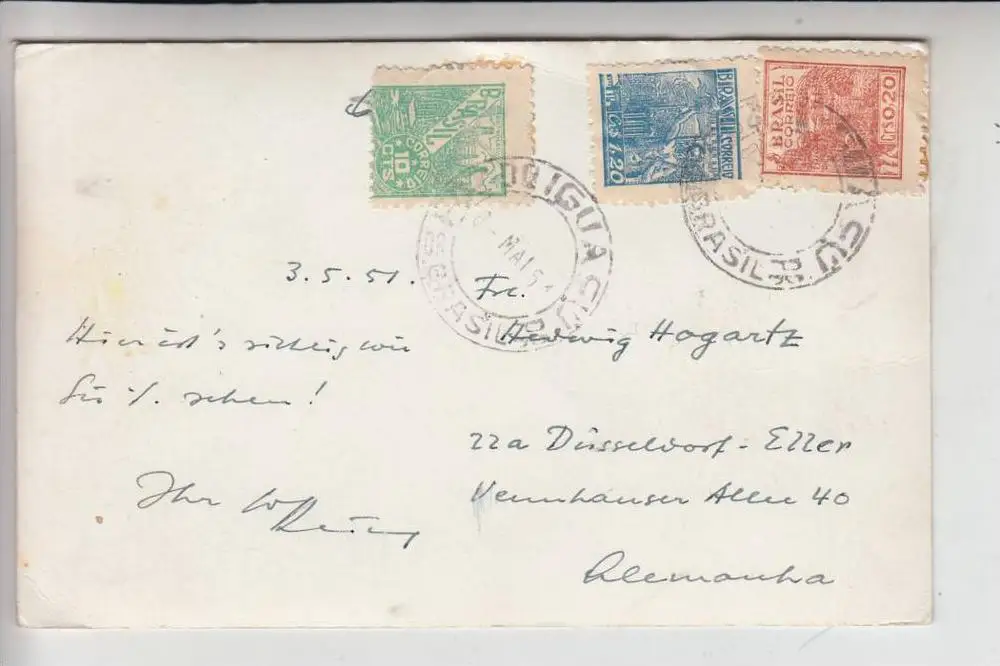 BRASIL
CORREIO
10
CTS
BRASIL CORREIO
CTS 1,20
BRASIL
CORREIO
CTS 0,20
IGUAÇU
MAI 5
BRASIL
IGUAÇU
BRASIL
3.5.51.
Hier ist's richtig wie
Sie %. sehen!
Ihr
Frl.
Hedwig Hogartz
22a Düsseldorf-Eller
Vennhauser Allee 40
Alemanha